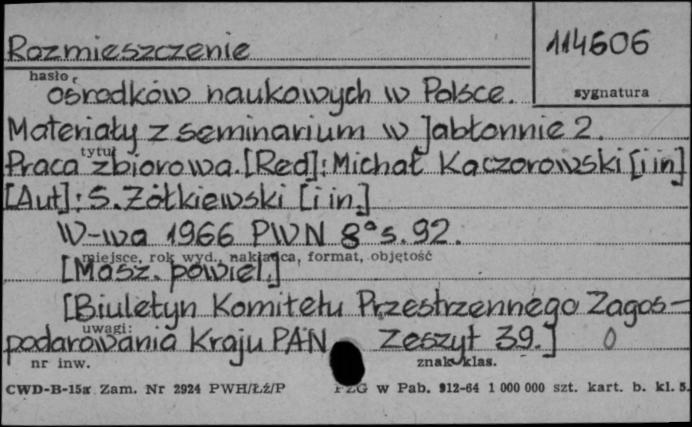 Rozmieszczenie
114606
hasło
sygnatura
ośrodków naukowych w Polsce.
Materiały z seminarium w Jabłonnie 2.
tytuł
Praca zbiorowa. [Red]: Michał Kaczorowski [i in]
[Aut]: S. Żółkiewski [i in.]
W-wa 1966 PWN 8° s. 92.
miejsce, rok wyd., nakładca, format, objętość
[Masz. powiel.]
[Biuletyn Komitetu Przestrzennego Zagos-
uwagi:
podarowania Kraju PAN Zeszyt 39.] 0
nr inw.
znak klas.
CWD-B-15a Zam. Nr 2924 PWH/Łź/P PZG w Pab. 912-64 1 000 000 szt. kart. b. kl. 5.